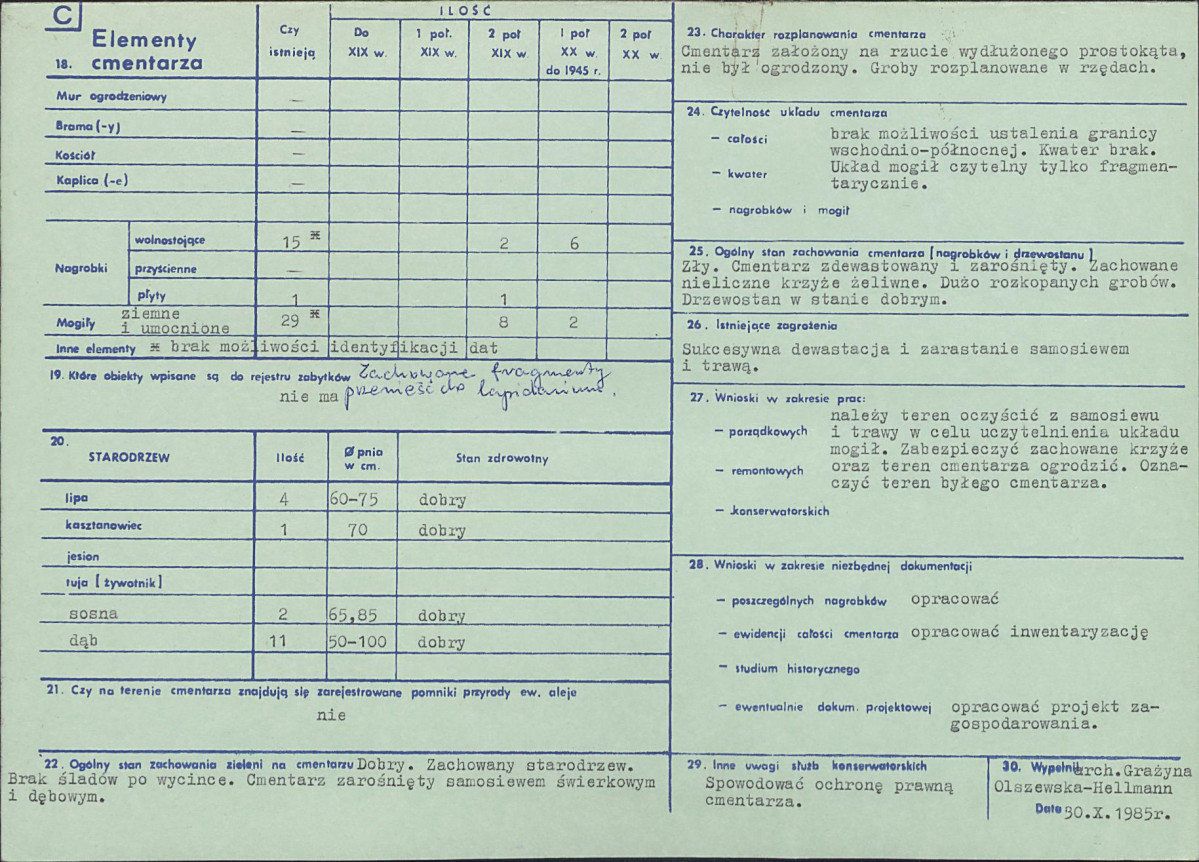 C
Elementy
18. cmentarza
Czy
istnieją
ILOŚĆ
Do
XIX w.
1 poł.
XIX w.
2 poł
XIX w
I poł
XX w.
do 1945 r.
2 poł
XX w.
Mur ogrodzeniowy —
Brama (-y) —
Kościół —
Kaplica (-e) —
Nagrobki
wolnostojące 15 ж 2 6
przyścienne —
płyty 1 1
Mogiły ziemne
i umocnione 29 ж 8 2
Inne elementy ж brak możliwości identyfikacji dat
19. Które obiekty wpisane są do rejestru zabytków Zachowane fragmenty
nie ma przenieść do lapidarium.
20.
STARODRZEW Ilość Ø pnia
w cm. Stan zdrowotny
lipa 4 60-75 dobry
kasztanowiec 1 70 dobry
jesion
tuja [ żywotnik ]
sosna 2 65,85 dobry
dąb 11 50-100 dobry
21. Czy na terenie cmentarza znajdują się zarejestrowane pomniki przyrody ew. aleje
nie
22. Ogólny stan zachowania zieleni na cmentarzu Dobry. Zachowany starodrzew.
Brak śladów po wycince. Cmentarz zarośnięty samosiewem świerkowym
i dębowym.
23. Charakter rozplanowania cmentarza
Cmentarz założony na rzucie wydłużonego prostokąta,
nie był ogrodzony. Groby rozplanowane w rzędach.
24. Czytelność układu cmentarza
— całości brak możliwości ustalenia granicy
wschodnio-północnej. Kwater brak.
— kwater Układ mogił czytelny tylko fragmen-
tarycznie.
— nagrobków i mogił
25. Ogólny stan zachowania cmentarza [ nagrobków i drzewostanu ]
Zły. Cmentarz zdewastowany i zarośnięty. Zachowane
nieliczne krzyże żeliwne. Dużo rozkopanych grobów.
Drzewostan w stanie dobrym.
26. Istniejące zagrożenia
Sukcesywna dewastacja i zarastanie samosiewem
i trawą.
27. Wnioski w zakresie prac:
należy teren oczyścić z samosiewu
— porządkowych i trawy w celu uczytelnienia układu
mogił. Zabezpieczyć zachowane krzyże
— remontowych oraz teren cmentarza ogrodzić. Ozna-
czyć teren byłego cmentarza.
— konserwatorskich
28. Wnioski w zakresie niezbędnej dokumentacji
— poszczególnych nagrobków opracować
— ewidencji całości cmentarza opracować inwentaryzację
— studium historycznego
— ewentualnie dokum. projektowej opracować projekt za-
gospodarowania.
29. Inne uwagi służb konserwatorskich
Spowodować ochronę prawną
cmentarza.
30. Wypełnił arch. Grażyna
Olszewska-Hellmann
Data 30.X.1985r.